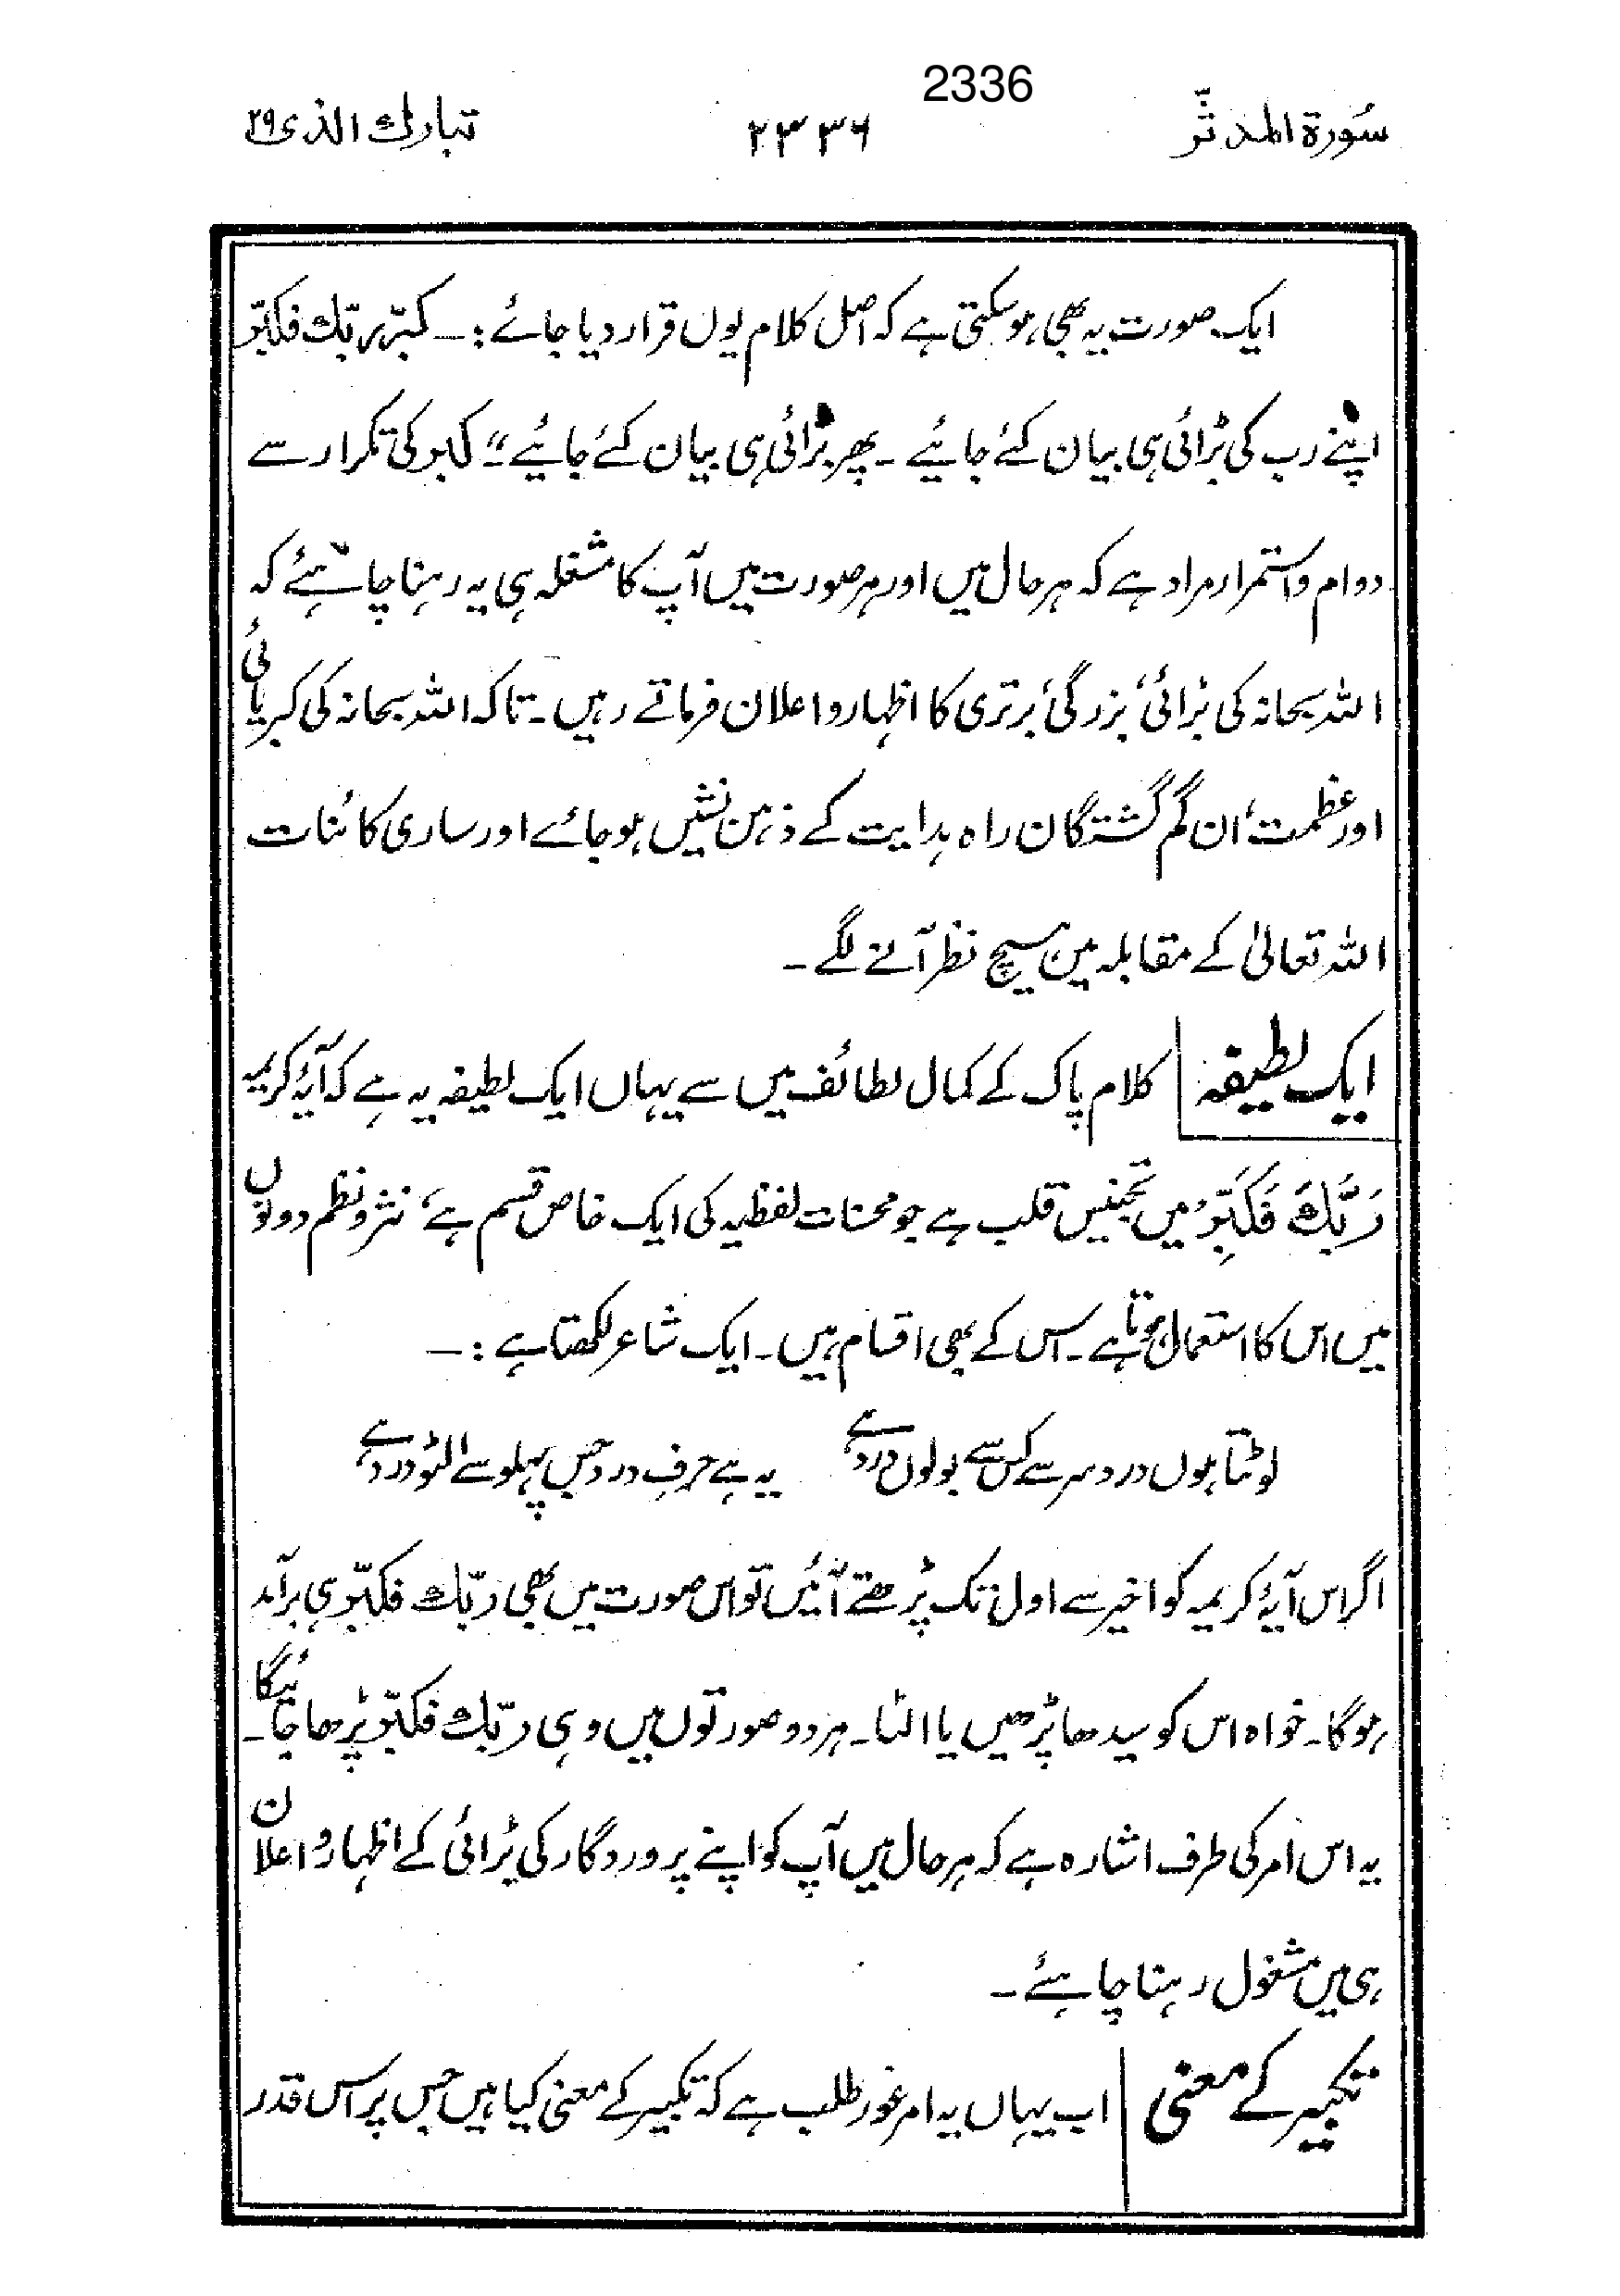 2336
سُورة المدثّر ۲۳۳۶ تبارك الذى ۲۹
ایک صورت یہ بھی ہوسکتی ہے کہ اصل کلام یوں قرار دیا جائے :۔ کبّر ربّك فکبّر
اپنے رب کی بڑائی ہی بیان کئے جائیے ۔ پھر بڑائی ہی بیان کئے جائیے "۔ کبر کی تکرار سے
دوام و استمرار مراد ہے کہ ہر حال میں اور ہر صورت میں آپ کا مشغلہ ہی یہ رہنا چاہئے کہ
اللہ سبحانہ کی بڑائی، بزرگی، برتری کا اظہار و اعلان فرماتے رہیں ۔ تاکہ اللہ سبحانہ کی کبریائی
اور عظمت، ان گم گشتگان راہ ہدایت کے ذہن نشیں ہوجائے اور ساری کائنات
اللہ تعالیٰ کے مقابلہ میں ہیچ نظر آنے لگے ۔
ایک لطیفہ کلام پاک کے کمال لطائف میں سے یہاں ایک لطیفہ یہ ہے کہ آیۂ کریمہ
رَبَّكَ فَكَبِّرْ میں تجنیس قلب ہے جو محسنات لفظیہ کی ایک خاص قسم ہے، نثر و نظم دونوں
میں اس کا استعمال ہوتا ہے ۔ اس کے بھی اقسام ہیں ۔ ایک شاعر لکھتا ہے :۔
لوٹتا ہوں درد سر سے کس سے بولوں درد ہے یہ ہے حرفِ درد جس پہلو سے الٹو درد ہے
اگر اس آیۂ کریمہ کو اخیر سے اول تک پڑھتے آئیں تو اس صورت میں بھی ربّك فکبّر ہی برآمد
ہوگا ۔ خواہ اس کو سیدھا پڑھیں یا الٹا ۔ ہر دو صورتوں میں وہی ربّك فکبّر پڑھا جائیگا ۔
یہ اس امر کی طرف اشارہ ہے کہ ہر حال میں آپ کو اپنے پروردگار کی بڑائی کے اظہار و اعلان
ہی میں مشغول رہنا چاہئے ۔
تکبیر کے معنی اب یہاں یہ امر غور طلب ہے کہ تکبیر کے معنی کیا ہیں جس پر اس قدر